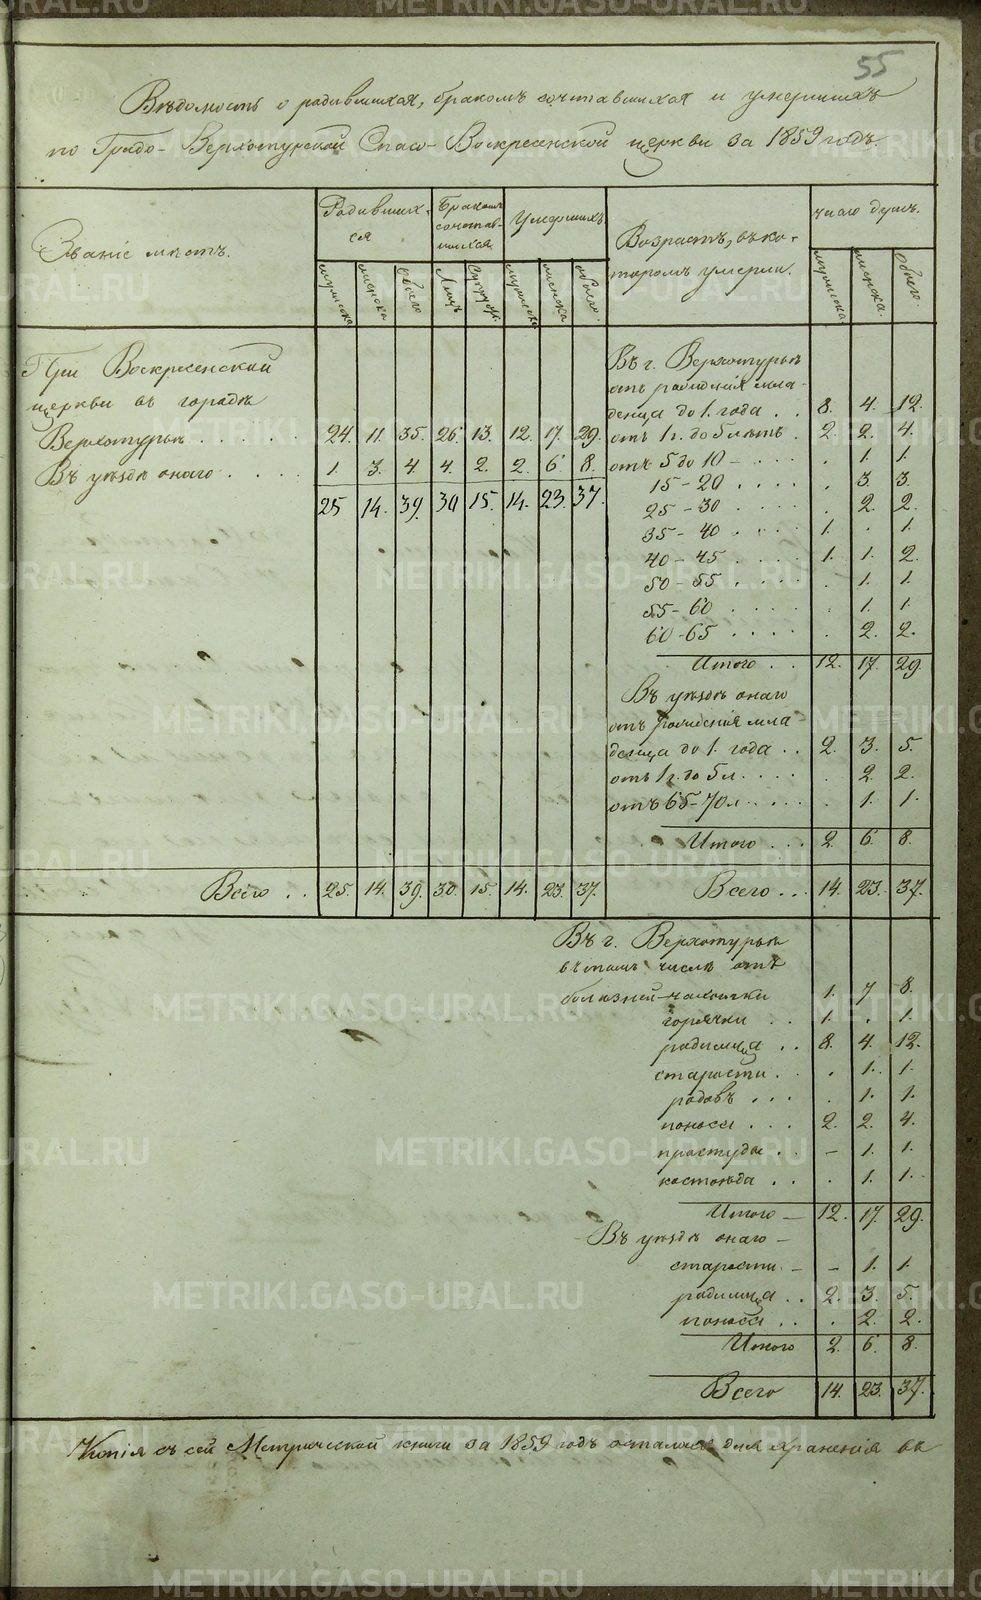 55
Вѣдомость о родившихся, бракомъ сочтавшихся и умершихъ
по Градо-Верхотурской Спасо-Воскресенской церкви за 1859 годъ.
Званіе мѣстъ.
Родивших-
ся
Бракомъ
сочетав-
шихся
Умершихъ
Возрастъ, въ ко-
торомъ умерли.
число душъ.
мужеска
женска
обоего
Лицъ
Супруж.
мужеска
женска
обоего.
мужеска.
женска.
обоего.
При Воскресенской
церкви въ городѣ
Верхотурьѣ . . . . . 24. 11. 35. 26. 13. 12. 17. 29.
Въ уѣздѣ онаго . . . . 1. 3. 4. 4. 2. 2. 6. 8.
25 14. 39. 30 15. 14. 23. 37.
Въ г. Верхотурьѣ
отъ рожденія мла-
денца до 1. года . . 8. 4. 12.
отъ 1 г. до 5 лѣтъ . 2. 2. 4.
отъ 5 до 10 - . . . . 1. 1.
15-20 . . . . . 3. 3.
25-30 . . . . . 2. 2.
35-40 . . . . 1. . 1.
40-45 . . . . 1. 1. 2.
50-55 . . . . . 1. 1.
55-60 . . . . . 1. 1.
60-65 . . . . . 2. 2.
Итого . . 12. 17. 29
Въ уѣздѣ онаго
отъ рожденія мла-
денца до 1. года . . 2. 3. 5.
отъ 1 г. до 5 л. . . . . 2. 2.
отъ 65-70 л. . . . . 1. 1.
Итого . . . 2. 6. 8.
Всего . . 25. 14. 39. 30. 15. 14. 23. 37.
Всего . . . 14. 23. 37.
Въ г. Верхотурьѣ
въ томъ числѣ отъ
болѣзней-чахотки 1. 7 8.
горячки . . 1. . 1.
родимца . . 8. 4. 12.
старости . . . 1. 1.
родовъ . . . . 1. 1.
поноса . . . 2. 2. 4.
простуды . . - 1. 1.
костоѣда . . . 1. 1.
Итого - 12. 17. 29.
Въ уѣздѣ онаго -
старости. - - 1. 1.
родимца . . 2. 3. 5.
поноса . . . 2. 2.
Итого 2. 6. 8.
Всего 14. 23. 37.
Копія съ сей Метрической книги за 1859 годъ осталась для храненія въ
METRIKI.GASO-URAL.RU